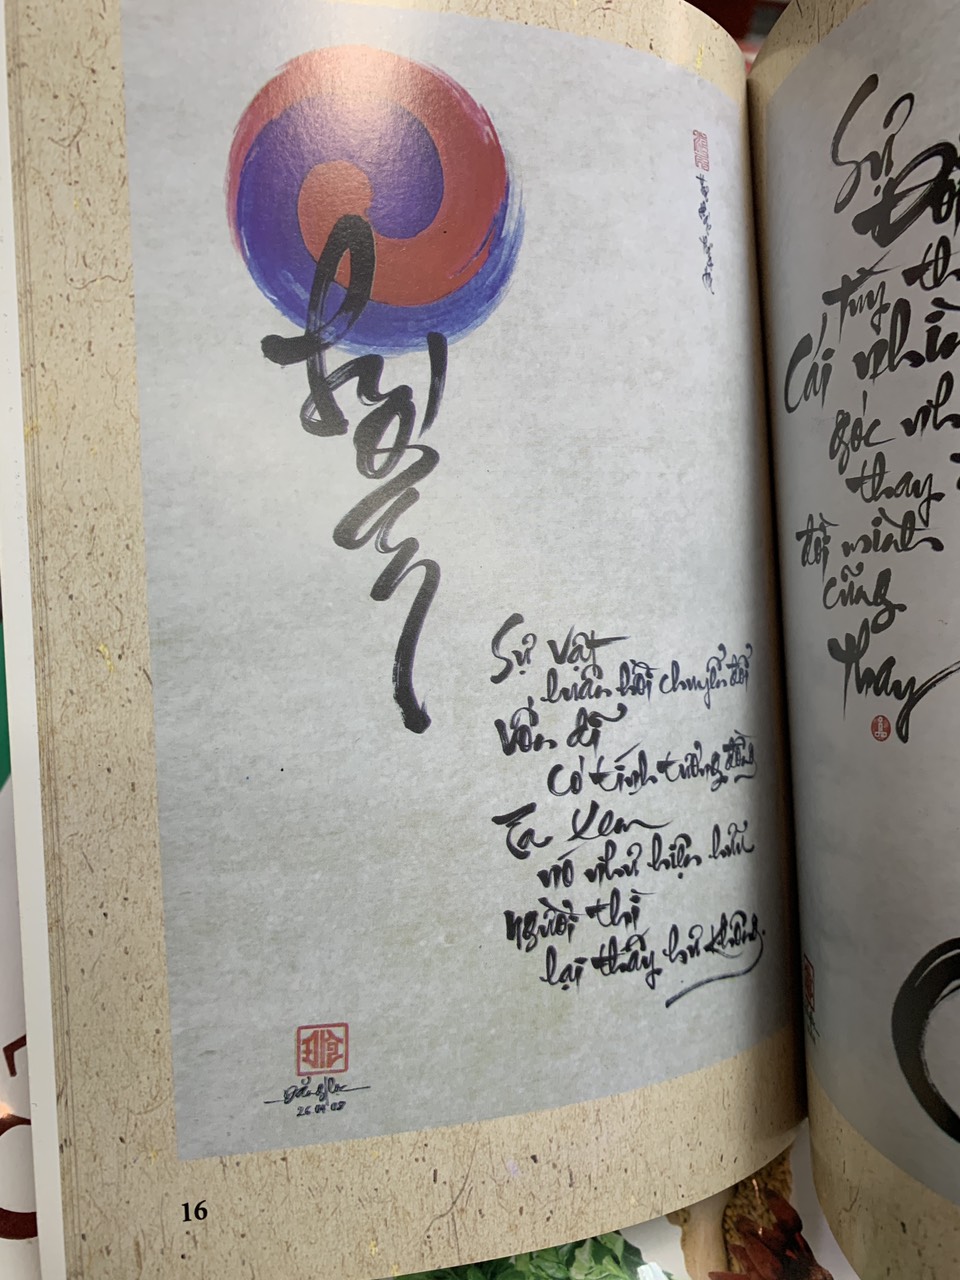 Sự vật
luân hồi chuyển đổi
vốn dĩ
có tính tương đồng
Ta xem
nó như hiện hữu
người thì
lại thấy hư không.
26 04 08
16
Sự
tùy
Cái
góc
thay
đổi mình
cũng
thay